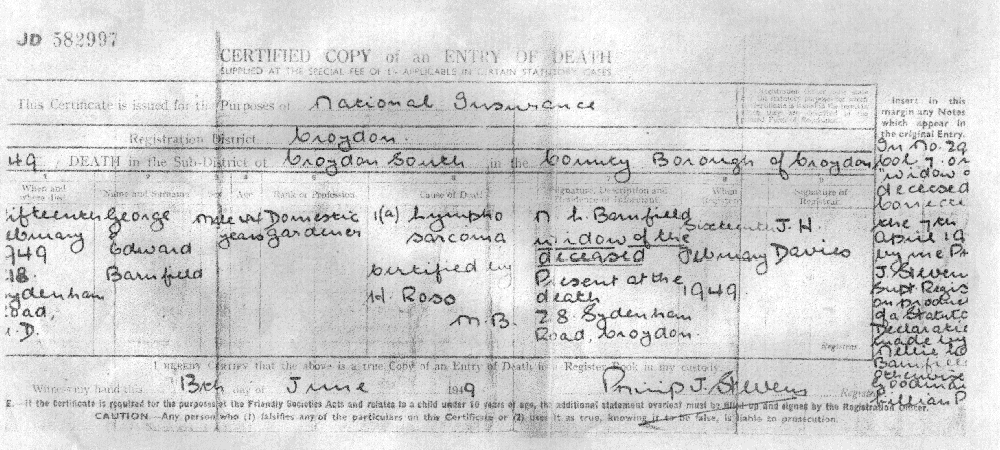 JD 582997
CERTIFIED COPY of an ENTRY OF DEATH
SUPPLIED AT THE SPECIAL FEE OF 1/- APPLICABLE IN CERTAIN STATUTORY CASES
This Certificate is issued for the Purposes of National Insurance
Registration District Croydon
49 DEATH in the Sub-District of Croydon South in the County Borough of Croydon
When and where died
Name and Surname
Sex
Age
Rank or Profession
Cause of Death
Signature, Description and Residence of Informant
When Registered
Signature of Registrar
ifteenth
ebruary
949
18
ydenham
oad,
.D.
George
Edward
Barnfield
Male
years
Domestic
gardener
1(a) Lympho
sarcoma
Certified by
H. Ross
M.B.
N. L. Barnfield
widow of the
deceased
Present at the
death
28. Sydenham
Road, Croydon.
Sixteenth
February
1949
J.H.
Davies
Registrar
Insert in this
margin any Notes
which appear in
the original Entry.
In No. 29
Col 7. or
"widow o
deceased
the 7th
April 19
by me
J. Steven
Supt Regis
on produc
of a Statuto
Declaratio
made by
Nellie
Barnfiel
otherwise
Goodman
Lillian P
I HEREBY CERTIFY that the above is a true Copy of an Entry of Death in a Register Book in my custody.
Witness my hand this 13th day of June 1949 Philip J. Stevens Registrar
E.—If the Certificate is required for the purposes of the Friendly Societies Acts and relates to a child under 10 years of age, the additional statement overleaf must be filled up and signed by the Registration Officer.
CAUTION—Any person who (1) falsifies any of the particulars on this Certificate or (2) uses it as true, knowing it to be false, is liable to prosecution.